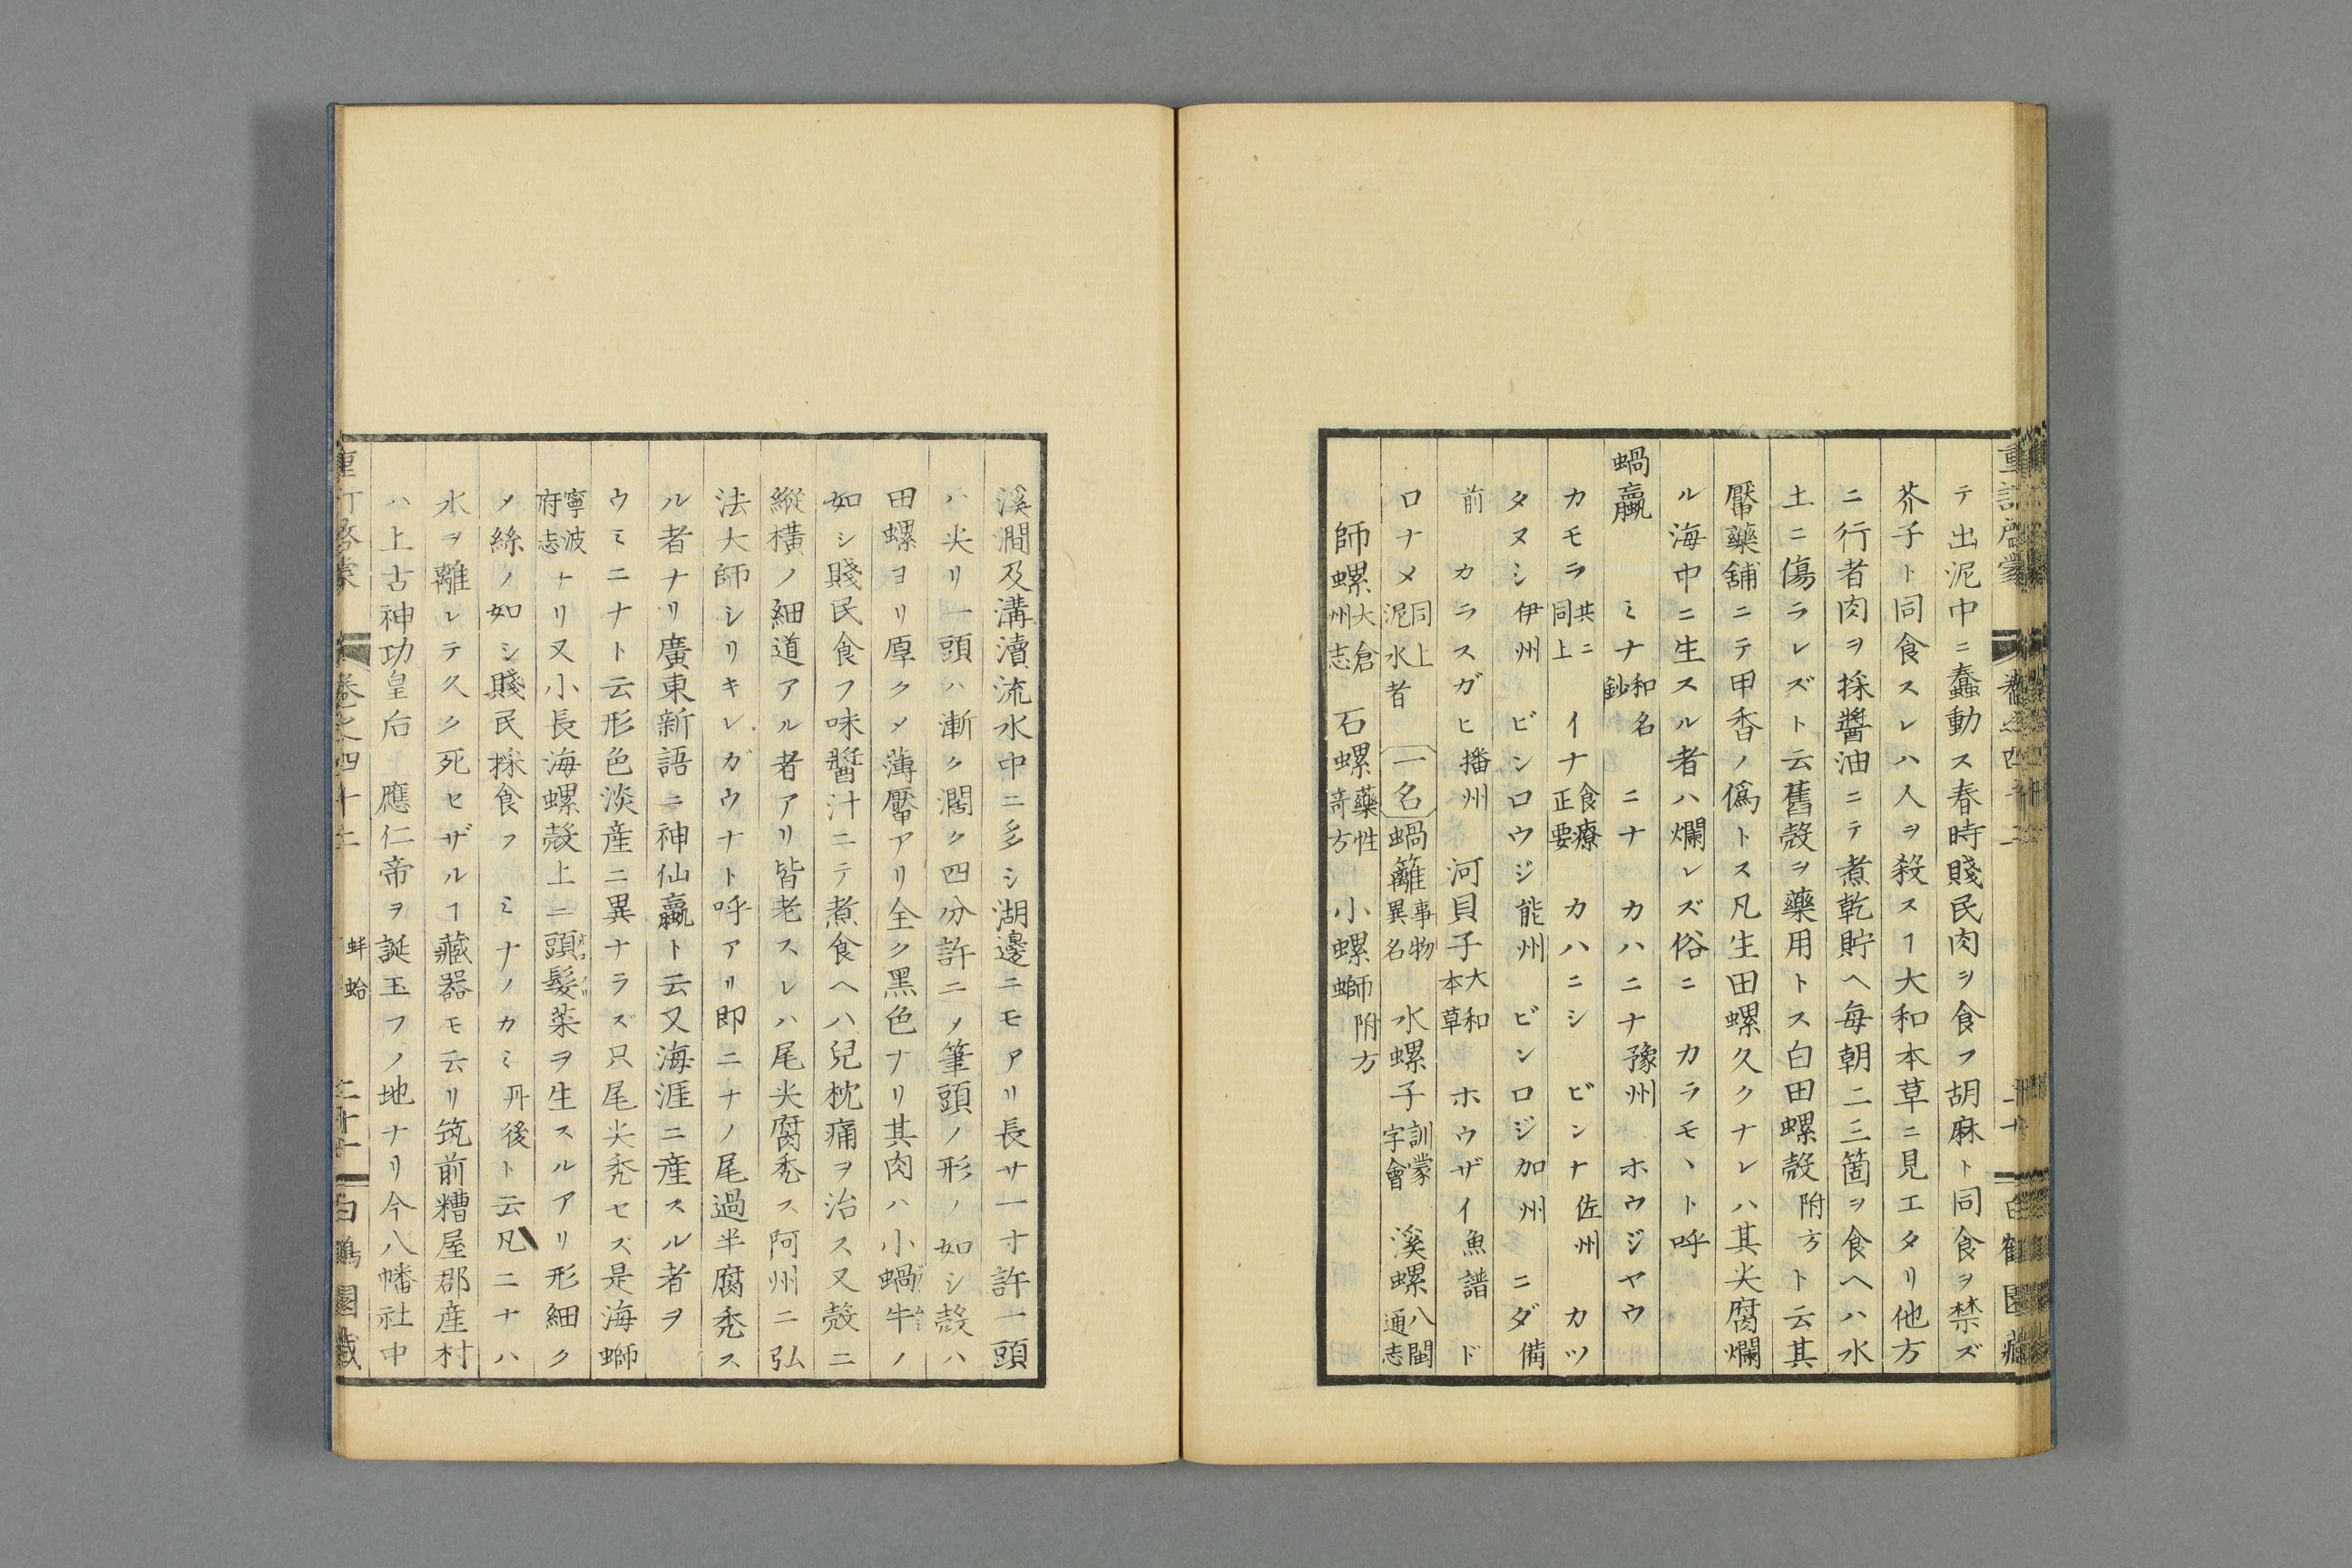 テ出泥中ニ蠢動ス春時賤民肉ヲ食フ胡麻ト同食ヲ禁ズ
芥子ト同食スレハ人ヲ殺スヿ大和本草ニ見エタリ他方
ニ行者肉ヲ採醬油ニテ煮乾貯ヘ毎朝二三箇ヲ食ヘハ水
土ニ傷ラレズト云舊殻ヲ藥用トス白田螺殻附方ト云其
靨藥舖ニテ甲香ノ僞トス凡生田螺久クナレハ其尖腐爛
ル海中ニ生スル者ハ爛レズ俗ニ カラモヽト呼
蝸蠃 ミナ和名鈔 ニナ カハニナ豫州 ホウジヤウ
カモラ共ニ同上 イナ食療正要 カハニシ ビンナ佐州 カツ
タヌシ伊州 ビンロウジ能州 ビンロジ加州 ニダ備
前 カラスガヒ播州 河貝子大和本草 ホウザイ魚譜 ド
ロナメ同上泥水者 一名 蝸籬事物異名 水螺子訓蒙字會 溪螺八閩通志
師螺大倉州志 石螺藥性竒方 小螺螄附方
溪澗及溝瀆流水中ニ多シ湖邊ニモアリ長サ一寸許一頭
ハ尖リ一頭ハ漸ク濶ク四分許ニノ筆頭ノ形ノ如シ殻ハ
田螺ヨリ厚クメ薄靨アリ全ク黒色ナリ其肉ハ小蝸牛ノ
如シ賤民食フ味醬汁ニテ煮食ヘハ兒枕痛ヲ治ス又殻ニ
縱横ノ細道アル者アリ皆老スレハ尾尖腐秃ス阿州ニ弘
法大師シリキレガウナト呼アリ即ニナノ尾過半腐秃ス
ル者ナリ廣東新語ニ神仙蠃ト云又海涯ニ産スル者ヲ
ウミニナト云形色淡産ニ異ナラズ只尾尖秃セズ是海螄
寧波府志ナリ又小長海螺殻上ニ頭髮菜ヲ生スルアリ形細ク
メ絲ノ如シ賤民採食フ ミナノカミ丹後ト云凡ニナハ
水ヲ離レテ久ク死セザルヿ藏器モ云リ筑前糟屋郡産村
ハ上古神功皇后 應仁帝ヲ誕玉フノ地ナリ今八幡社中
卷之四十二 蚌蛤 白鶴園藏